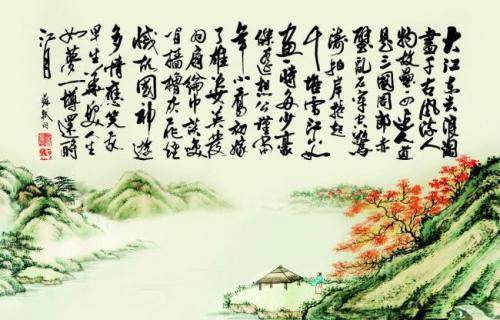 大江東去浪淘
盡千古風流人
物故壘西邊人道
是三國周郎赤
壁亂石穿空驚
濤拍岸捲起
千堆雪江山如
畫一時多少豪
傑遙想公瑾當
年小喬初嫁
了雄姿英發
羽扇綸巾談笑
間檣櫓灰飛煙
滅故國神遊
多情應笑我
早生華髮人生
如夢一樽還酹
江月
蘇軾詞